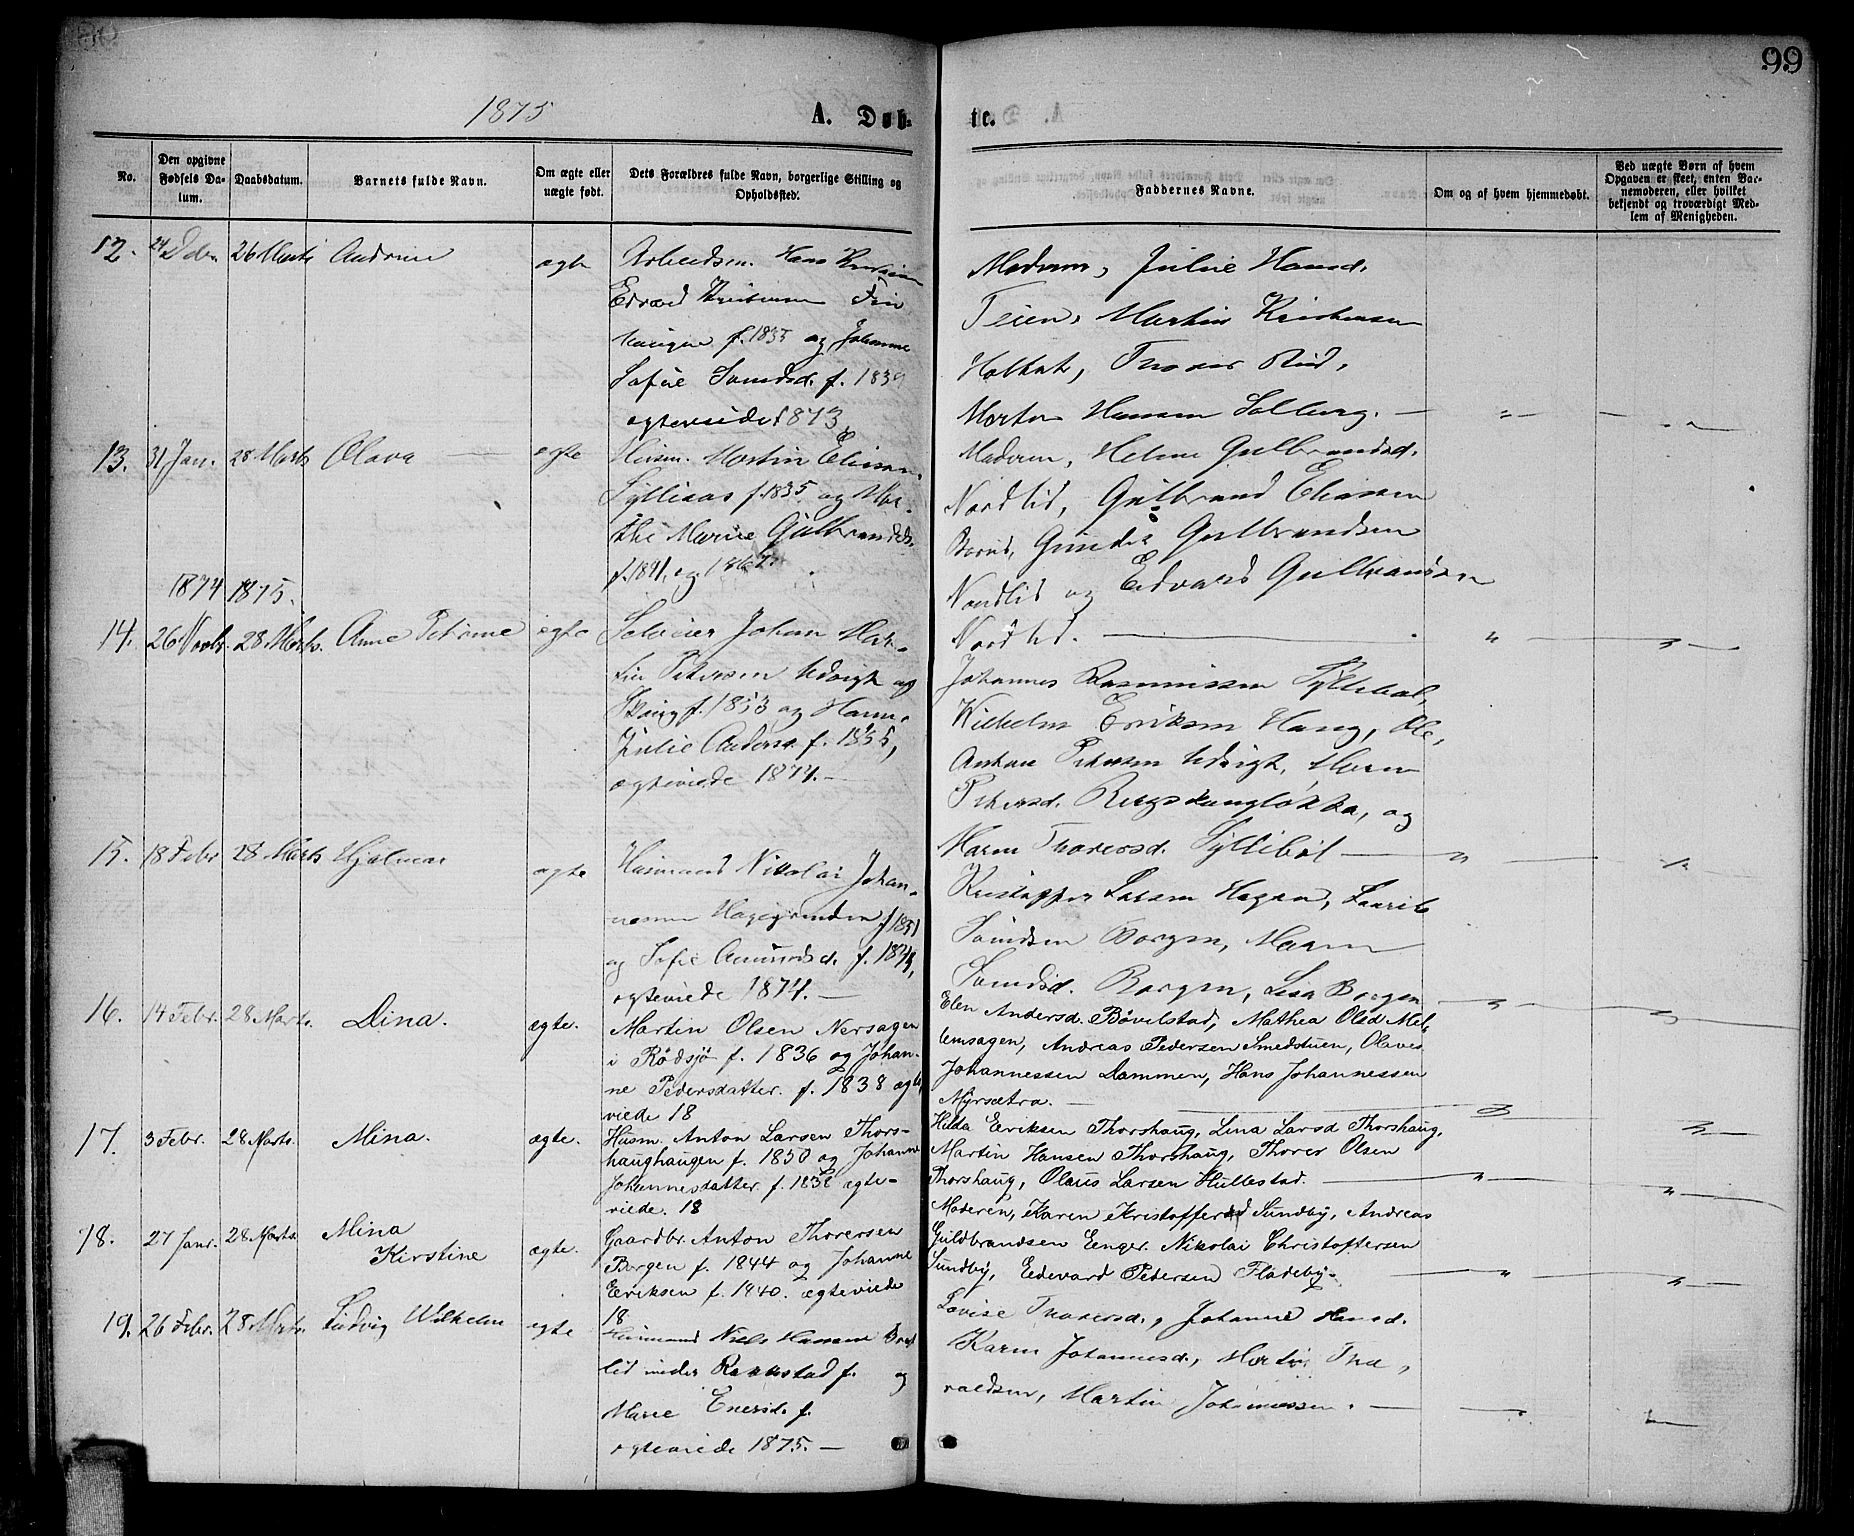 99
1875 A. Døb-
te.
No.
Den opgivne Fødsels Da-tum.
Daabsdatum.
Barnets fulde Navn.
Om ægte eller uægte født.
Dets Forældres fulde Navn, borgerlige Stilling og Opholdssted.
Faddernes Navne.
Om og af hvem hjemmedøbt.
Ved uægte Børn af hvem Opgaven er skeet, enten Bar-nemoderen, eller hvilket bekjendt og troværdigt Med-lem af Menigheden.
12. 24 Dcbr. 26 Marts Andrine ægte Arbeidsm. Hans
Edvard Kristiansen
f. 1835 og Johanne
Sofie f. 1839
ægteviede 1873,
Moderen, Julie Hansd.
Teien, Martin Kristensen
Thorer Rud,
Morten Hansen Solberg. — " —
13. 31 Jan. 28 Marts Olava — ægte Husm. Martin Eliassen
f. 1835 og Mar-
the Marie Gulbrandsd.
f. 1841, og 1867.
Moderen, Helene Gulbrandsd.
Nordlid, Gulbrand Eliassen
Gunder Gulbrandsen
Nordlid og Edvard Gulbrandsen
Nordlid. — " —
1874 1875.
14. 26 Novbr. 28 Marts. Anne Petrine ægte Selveier Johan Mar-
tin Petersen Udsigt og
Skoug f. 1853 og Maren
Julie Anders. f. 1855,
ægteviede 1874. —
Johannes Rasmussen Syllibøl,
Wilhelm Eriksen Haug, Ole,
Anton Petersen Udsigt, Maren
Petersd. og
Maren Thorersd. Syllibøl — " —
15. 18 Febr 28 Marts Hjalmar ægte Husmand Nikolai Johan-
nesen Hagegrinden f 1851
og Sofie Amundsd. f.
ægteviede 1874. —
Kristoffer Larsen Hagen, Laurits
Borgen, Maren
Borgen, Lisa Borgen — " —
16. 14 Febr. 28 Marts. Dina. ægte. Martin Olsen Nersagen
i Rødsjø f. 1836 og Johan-
ne Pedersdatter f. 1838 ægte
viede 18
Elen Andersd. Bøvelstad, Mathea Olsd Mel-
lemsagen, Andreas Pedersen Smedstuen, Olaves
Johannessen Dammen, Hans Johannessen
Myrsætra. —
17. 3 Febr. 28 Marts. Mina. ægte. Husm. Anton Larsen Thors-
haughaugen f. 1850 og Johanne
Johannesdatter. f. ægte-
viede. 18
Hilda Eriksen Thorshaug, Lina Larsd Thorshaug,
Martin Hansen Thorshaug, Thorer Olsen
Thorshaug, Olaus Larsen Hullestad. — " —
18. 27 Janr. 28 Marts. Mina
Kirstine ægte. Gaardbr. Anton Thorersen
Borgen f. 1844 og Johanne
Eriksen f. 1840. ægteviede
18
Moderen, Karen Kristoffersd Sundby, Andreas
Guldbrandsen Eenger. Nikolai Christoffersen
Sundby, Eedevard Pedersen Fladeby. — " —
19. 26 Febr. 28 Marts. Ludvig Wilhelm ægte Husmand Niels Hansen
lid under Ramstad f. og
Marie Enersd. f.
ægteviede 1875. —
Lovise Thorersd., Johanne Hansd.
Karen Johannesd., Martin Tho,
valdsen, Martin Johannessen. —